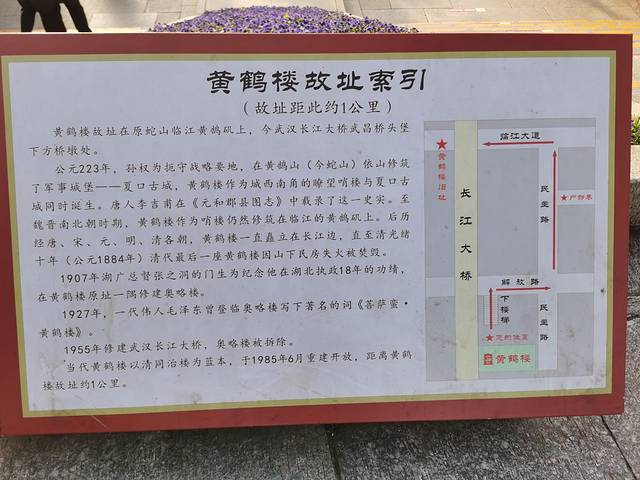 黄鹤楼故址索引
（故址距此约1公里）
黄鹤楼故址在原蛇山临江黄鹄矶上，今武汉长江大桥武昌桥头堡
下方桥墩处。
公元223年，孙权为扼守战略要地，在黄鹄山（今蛇山）依山修筑
了军事城堡——夏口古城，黄鹤楼作为城西南角的瞭望哨楼与夏口古
城同时诞生。唐人李吉甫在《元和郡县图志》中载录了这一史实。至
魏晋南北朝时期，黄鹤楼作为哨楼仍然修筑在临江的黄鹄矶上。后历
经唐、宋、元、明、清各朝，黄鹤楼一直矗立在长江边，直至清光绪
十年（公元1884年）清代最后一座黄鹤楼因山下民房失火被焚毁。
1907年湖广总督张之洞的门生为纪念他在湖北执政18年的功绩，
在黄鹤楼原址一隅修建奥略楼。
1927年，一代伟人毛泽东曾登临奥略楼写下著名的词《菩萨蛮·
黄鹤楼》。
1955年修建武汉长江大桥，奥略楼被拆除。
当代黄鹤楼以清同治楼为蓝本，于1985年6月重建开放，距离黄鹤
楼故址约1公里。
临江大道
★黄鹤楼旧址
长江大桥
民主路
★户部巷
解放路
下楼梯
民主路
★您的位置
黄鹤楼